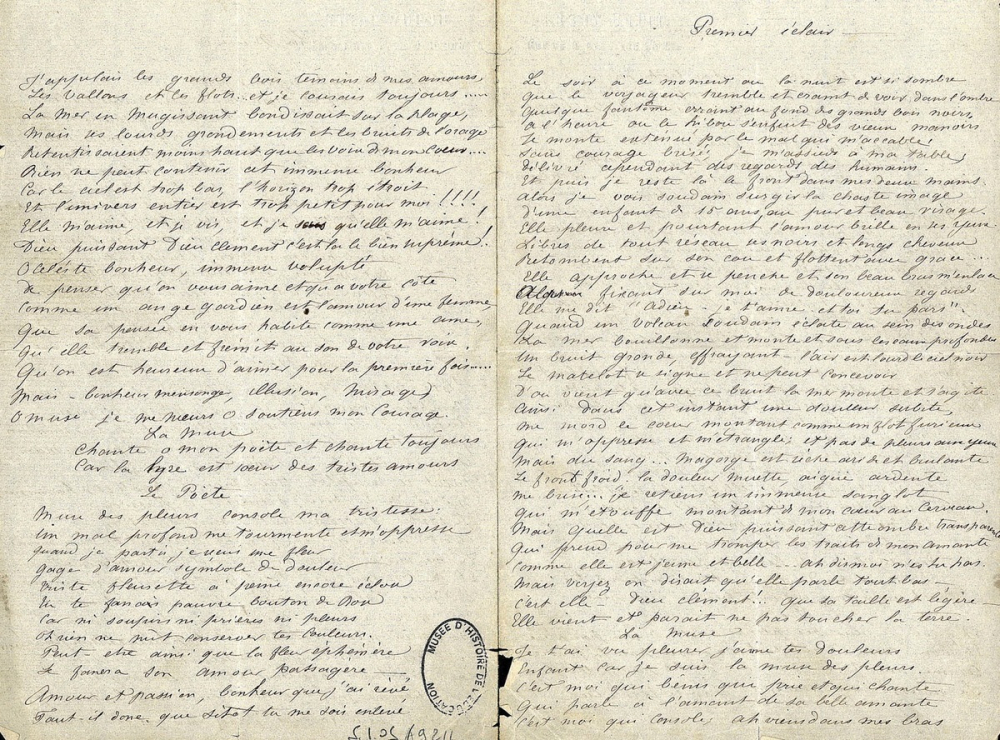 J'appelais les grands bois témoins de mes amours,
Les vallons et les flots.. et je courais toujours.....
La mer en mugissant bondissait sur la plage,
Mais ses lourds grondements et les bruits de l'orage
Retentissaient moins haut que les voix de mon coeur....
Rien ne peut contenir cet immense bonheur
Car le ciel est trop bas, l'horizon trop étroit
Et l'univers entier est trop petit pour moi !!!!
Elle m'aime, et je vis, et je sens qu'elle m'aime !
Dieu puissant Dieu clément c'est là le bien suprême !.
O céleste bonheur, immense volupté
de penser qu'on vous aime et qu'a votre côté
Comme un ange gardien est l'amour d'une femme,
Que sa pensée en vous habite comme une ame,
Qu'elle tremble et frémit au son de votre voix.
Qu'on est heureux d'aimer pour la première fois...
Mais - bonheur mensonge, illusion, mirage,
O muse je me meurs O soutiens mon courage.
La Muse
Chante o mon poëte et chante toujours
Car la lyre est soeur des tristes amours
Le Poëte
Muse des pleurs console ma tristesse :
Un mal profond me tourmente et m'oppresse
Quand je partis je vins une fleur
Gage d'amour symbole de douleur
Triste fleurette à peine encore éclose
Tu te fanais pauvre bouton de Rose
Car ni soupirs ni prières ni pleurs
Oh rien ne put conserver tes couleurs.
Peut etre ainsi que la fleur ephémère
Se fanera son amour passagère
Amour et passion, bonheur que j'ai rêvé
Faut-il donc que sitot tu me sois enlevé
MUSÉE D'HISTOIRE DE L'ÉDUCATION
Premier éclair
Le soir à ce moment ou la nuit est si sombre
Que le voyageur tremble et craint de voir dans l'ombre
Quelque fantôme errant au fond des grands bois noirs,
A l'heure ou le hibou s'enfuit des vieux manoirs
Je monte exténué par le mal qui m'accable,
Sans courage brisé je m'assieds à ma table,
Délivré cependant des regards des humains.
Et puis je reste là le front dans mes deux mains.
Alors je vois soudain surgir la chaste image
D'une enfant de 15 ans, au pur et beau visage.
Elle pleure et pourtant l'amour brille en ses yeux
Libres de tout réseau ses noirs et longs cheveux
Retombent sur son cou et flottent avec grace...
Elle approche et se penche et son beau bras m'enlace
fixant sur moi de douloureux regards
Elle me dit "Adieu - je t'aime et toi tu pars"
Quand un volcan soudain éclate au sein des ondes
La mer bouillonne et monte et sous les eaux profondes
Un bruit gronde, effrayant - l'air est lourd le ciel noir
Le matelot se signe et ne peut concevoir
D'ou vient qu'avec ce bruit la mer monte et s'agite
Ainsi dans cet instant une douleur subite,
Me mord le coeur montant comme un flot furieux
Qui m'oppresse et m'étrangle, et pas de pleurs aux yeux
Mais du sang... Ma gorge est sèche aride et brulante
Le front froid. la douleur muette, aigue ardente
me brise... je retiens un immense sanglot
Qui m'étouffe montant de mon coeur au cerveau.
Mais quelle est Dieu puissant cette ombre transparente
Qui prend pour me tromper les traits de mon amante
Comme elle est jeune et belle... ah dis moi n'es tu pas.
Mais voyez on dirait qu'elle parle tout bas -
C'est elle - Dieu clément !.. que sa taille est légère -
Elle vient et parait ne pas toucher la terre.
La Muse
Je t'ai vu pleurer j'aime tes douleurs
Enfant car je suis la muse des pleurs
C'est moi qui bénis qui prie et qui chante
Qui parle à l'amant de sa belle amante
C'est moi qui console ah viens dans mes bras